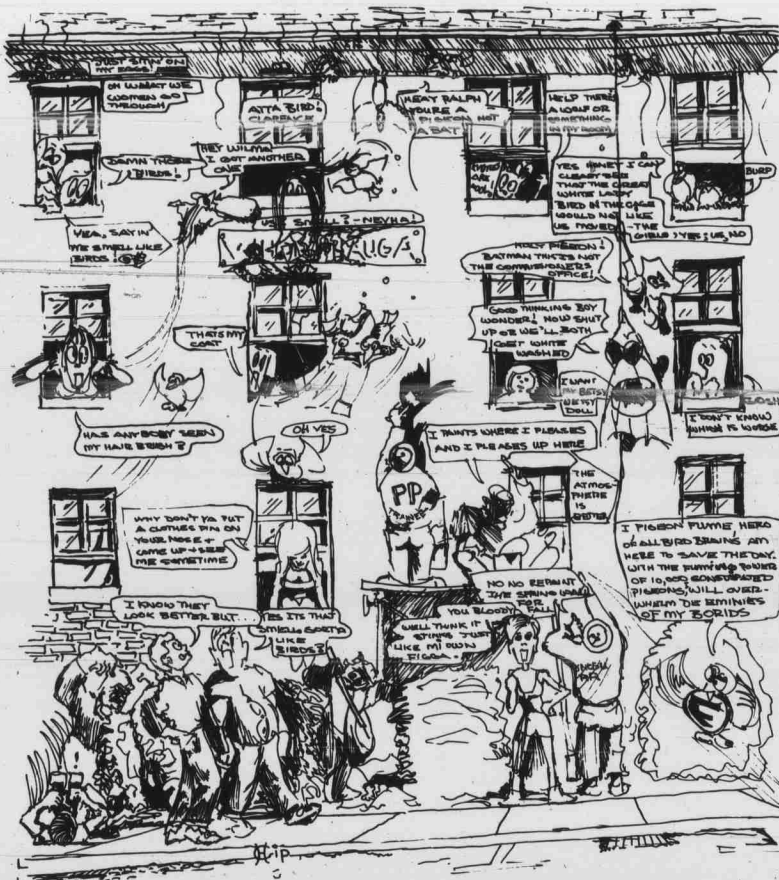 JUST SITIN' ON
MY EGGS!
OH WHAT WE
WOMEN GO
THROUGH
ATTA BIRD!
CLARENCE
HEAY RALPH
YOURE A
PIGEON NOT
A BAT
HELP THERE
A WOLF OR
SOMETHING
IN MY ROOM
DAMN THOSE
BIRDS!
HEY WILMA
I GOT ANOTHER
ONE
YES HONEY I CAN
CLEARY SEE
THAT THE GREAT
WHITE LADY
BIRD IN THE CAGE
WOULD NOT LIKE
US MOVED - THE
GIRLS; YES; US, NO
BURP
YEA, SAYIN
WE SMELL LIKE
BIRDS!
US SMELL? - NEVHA!
HOLY PIGEON!
BATMAN THIS IS NOT
THE COMMISSIONERS
OFFICE!
GOOD THINKING BOY
WONDER! NOW SHUT
UP OR WE'LL BOTH
GET WHITE
WASHED
THATS MY
COAT
I WANT
MY BETSY
WETSY
DOLL
I DON'T KNOW
WHICH IS WORSE
HAS ANYBODY SEEN
MY HAIR BRUSH?
OH YES
I PAINTS WHERE I PLEASES
AND I PLEASES UP HERE
THE
ATMOS-
PHERE
IS
BETTER
PP
TRAINEE
WHY DON'T YA PUT
A CLOTHES PIN ON
YOUR NOSE +
COME UP + SEE
ME SOMETIME
I PIGEON FUME, HERO
OF ALL BIRD BRAINS, AM
HERE TO SAVE THE DAY.
WITH THE FUMING POWER
OF 10,000 CONSTIPATED
PIGEONS, WILL OVER-
WHELM DE EMINIES
OF MY BORIDS
NO NO REPAINT
THE SPRING WALL
FOR
FALL
YOU BLOODY
WELL THINK IT
STINKS JUST
LIKE MI OWN
FIGGA.
I KNOW THEY
LOOK BETTER BUT...
YES ITS THAT
SMELL SORTA
LIKE
BIRDS?